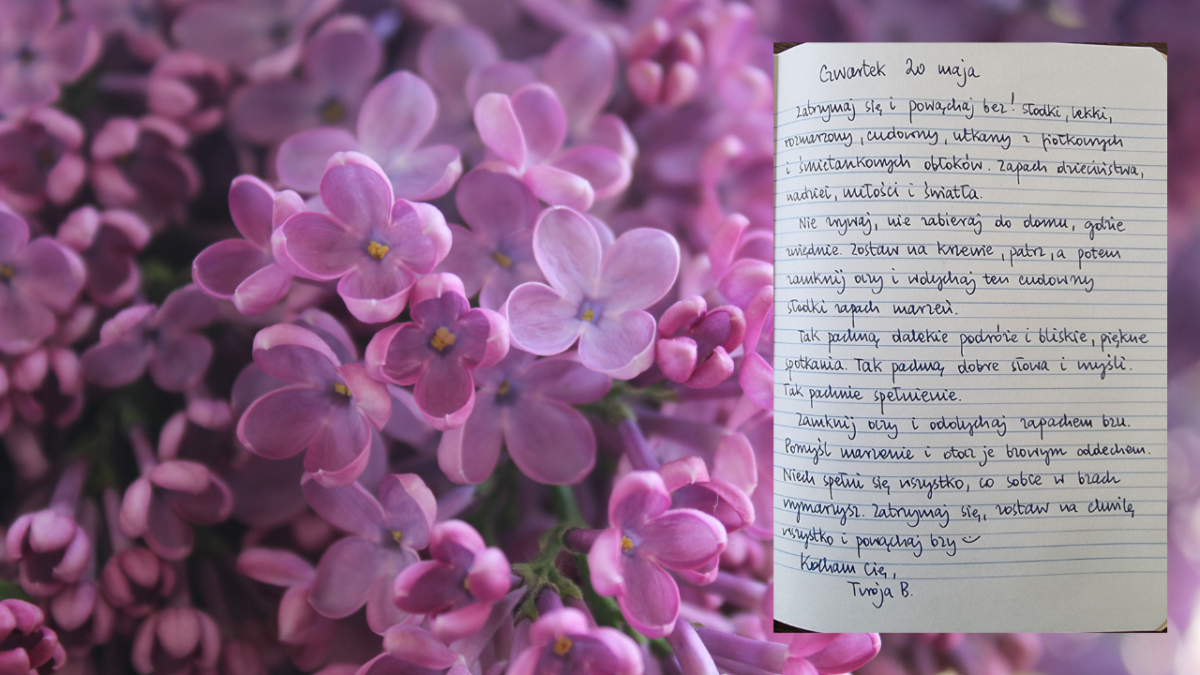 Czwartek 20 maja
Zatrzymaj się i powąchaj bez! Słodki, lekki,
rozmarzony, cudowny, utkany z fiołkowych
i śmietankowych obłoków. Zapach dzieciństwa,
nadziei, miłości i światła.
Nie zrywaj, nie zabieraj do domu, gdzie
zwiędnie. Zostaw na krzewie, patrz, a potem
zamknij oczy i wdychaj ten cudowny
słodki zapach marzeń.
Tak pachną dalekie podróże i bliskie, piękne
spotkania. Tak pachną dobre słowa i myśli.
Tak pachnie spełnienie.
Zamknij oczy i oddychaj zapachem bzu.
Pomyśl marzenie i otocz je bzowym oddechem.
Niech spełni się wszystko, co sobie w bzach
wymarzysz. Zatrzymaj się, zostaw na chwilę
wszystko i powąchaj bzy
Kocham Cię,
Twoja B.